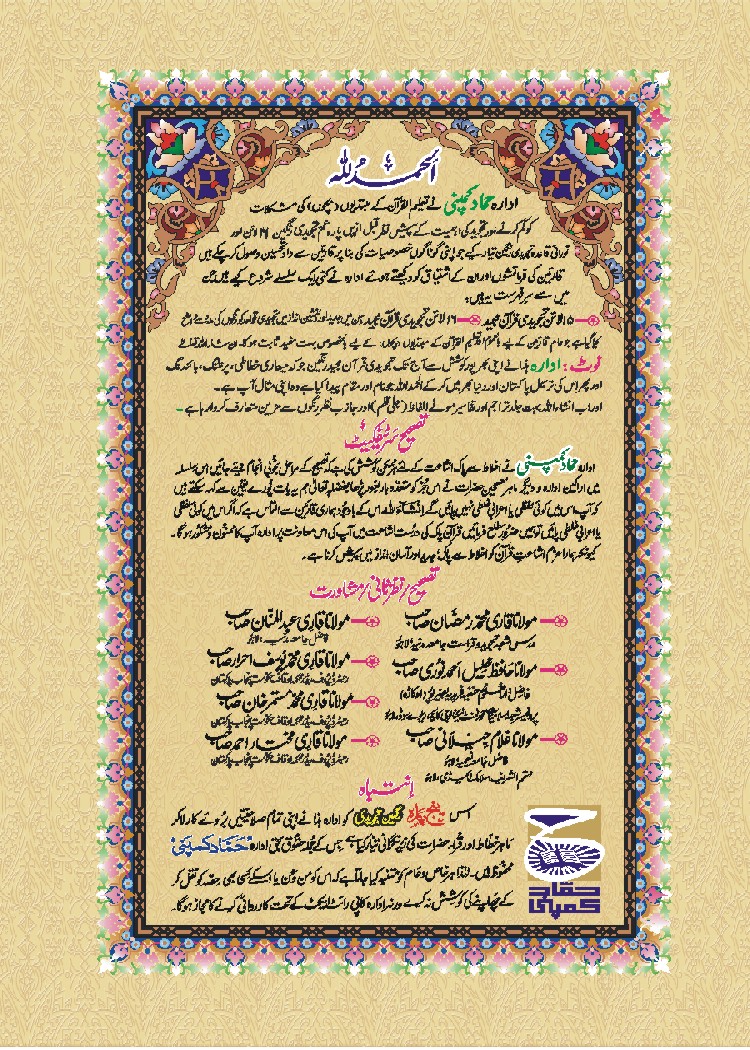 الحمد للہ
ادارہ حماد کمپنی نے تعلیم القرآن کے مبتدیوں (بچوں) کی مشکلات
کو کم کرنے اور تجوید کی اہمیت کے پیش نظر قبل ازیں پارہ عم تجویدی رنگین ۱۶ لائن اور
نورانی قاعدہ تجویدی رنگین تیار کیے جو اپنی گوناگوں خصوصیات کی بنا پر قارئین سے داد تحسین وصول کر چکے ہیں
قارئین کی فرمائشوں اور ان کے اشتیاق کو دیکھتے ہوئے ادارہ نے کئی ایک سلسلے شروع کیے ہیں جن
میں سے سرفہرست یہ ہیں:
۱۵ لائن تجویدی قرآن مجید ۱۶ لائن تجویدی قرآن مجید جن میں جدید اور دلنشین انداز میں تجویدی قواعد کو رنگوں کی مدد سے واضح
کیا گیا ہے جو عام قارئین کے لیے بالعموم اور تعلیم القرآن کے مبتدیوں (بچوں) کے لیے بالخصوص بہت مفید ثابت ہو گا۔ ان شاء اللہ تعالیٰ
نوٹ: ادارہ ہٰذا نے اپنی بھرپور کوشش سے آج تک تجویدی قرآن مجید رنگین جو کہ معیاری خطاطی، پرنٹنگ، بائنڈنگ
اور پھر اس کی ترسیل پاکستان اور دنیا بھر میں کر کے الحمد للہ جو نام اور مقام پیدا کیا ہے وہ اپنی مثال آپ ہے۔
اور اب انشاء اللہ بہت جلد تراجم اور تفاسیر موٹے الفاظ (جلی قلم) اور جاذب نظر رنگوں سے مزین متعارف کروا رہا ہے۔
تصحیح سرٹیفکیٹ
ادارہ حماد کمپنی نے اغلاط سے پاک اشاعت کے لئے ہر ممکن کوشش کی ہے کہ تصحیح کے مراحل بخوبی انجام پا جائیں اس سلسلہ
میں اراکین ادارہ و دیگر ماہر مصححین حضرات نے اس کو متعدد بار بغور پڑھا بفضلہ تعالیٰ ہم یہ بات پورے یقین سے کہہ سکتے ہیں
کہ آپ اس میں کوئی لفظی یا اعرابی غلطی نہیں پائیں گے (انشاء اللہ) اس کے باوجود ہماری قارئین سے التماس ہے کہ اگر اس میں کوئی لفظی
یا اعرابی غلطی پائیں تو ہمیں ضرور مطلع فرمائیں قرآن پاک کی درست اشاعت میں آپ کی اس معاونت پر ادارہ آپ کا ممنون و مشکور ہو گا۔
کیونکہ ہمارا عزم اشاعت قرآن کو اغلاط سے پاک، جدید اور آسان انداز میں پیش کرنا ہے۔
تصحیح / نظر ثانی / مشاورت
مولانا قاری محمد رمضان صاحب
مدرس شعبہ تجوید و قراءت جامعہ مدنیہ لاہور
مولانا حافظ خلیل احمد نوری صاحب
مولانا غلام جیلانی صاحب
مولانا قاری عبد المنان صاحب
مولانا قاری محمد یوسف احرار صاحب
مولانا قاری محمد مستمر خان صاحب
مولانا قاری مختار احمد صاحب
انتباہ
اس پنج پارہ رنگین تجویدی کو ادارہ ہٰذا نے اپنی تمام صلاحیتیں بروئے کار لا کر
ماہر حفاظ اور قراء حضرات کی زیر نگرانی تیار کیا ہے جس کے جملہ حقوق بحق ادارہ "حماد کمپنی"
محفوظ ہیں۔ لہٰذا ہر خاص و عام کو متنبہ کیا جاتا ہے کہ اس کو من و عن یا اسکے کسی بھی حصہ کو نقل کر
کے چھاپنے کی کوشش نہ کرے ورنہ ادارہ کاپی رائٹ ایکٹ کے تحت کارروائی کرنے کا مجاز ہو گا۔
حماد
کمپنی